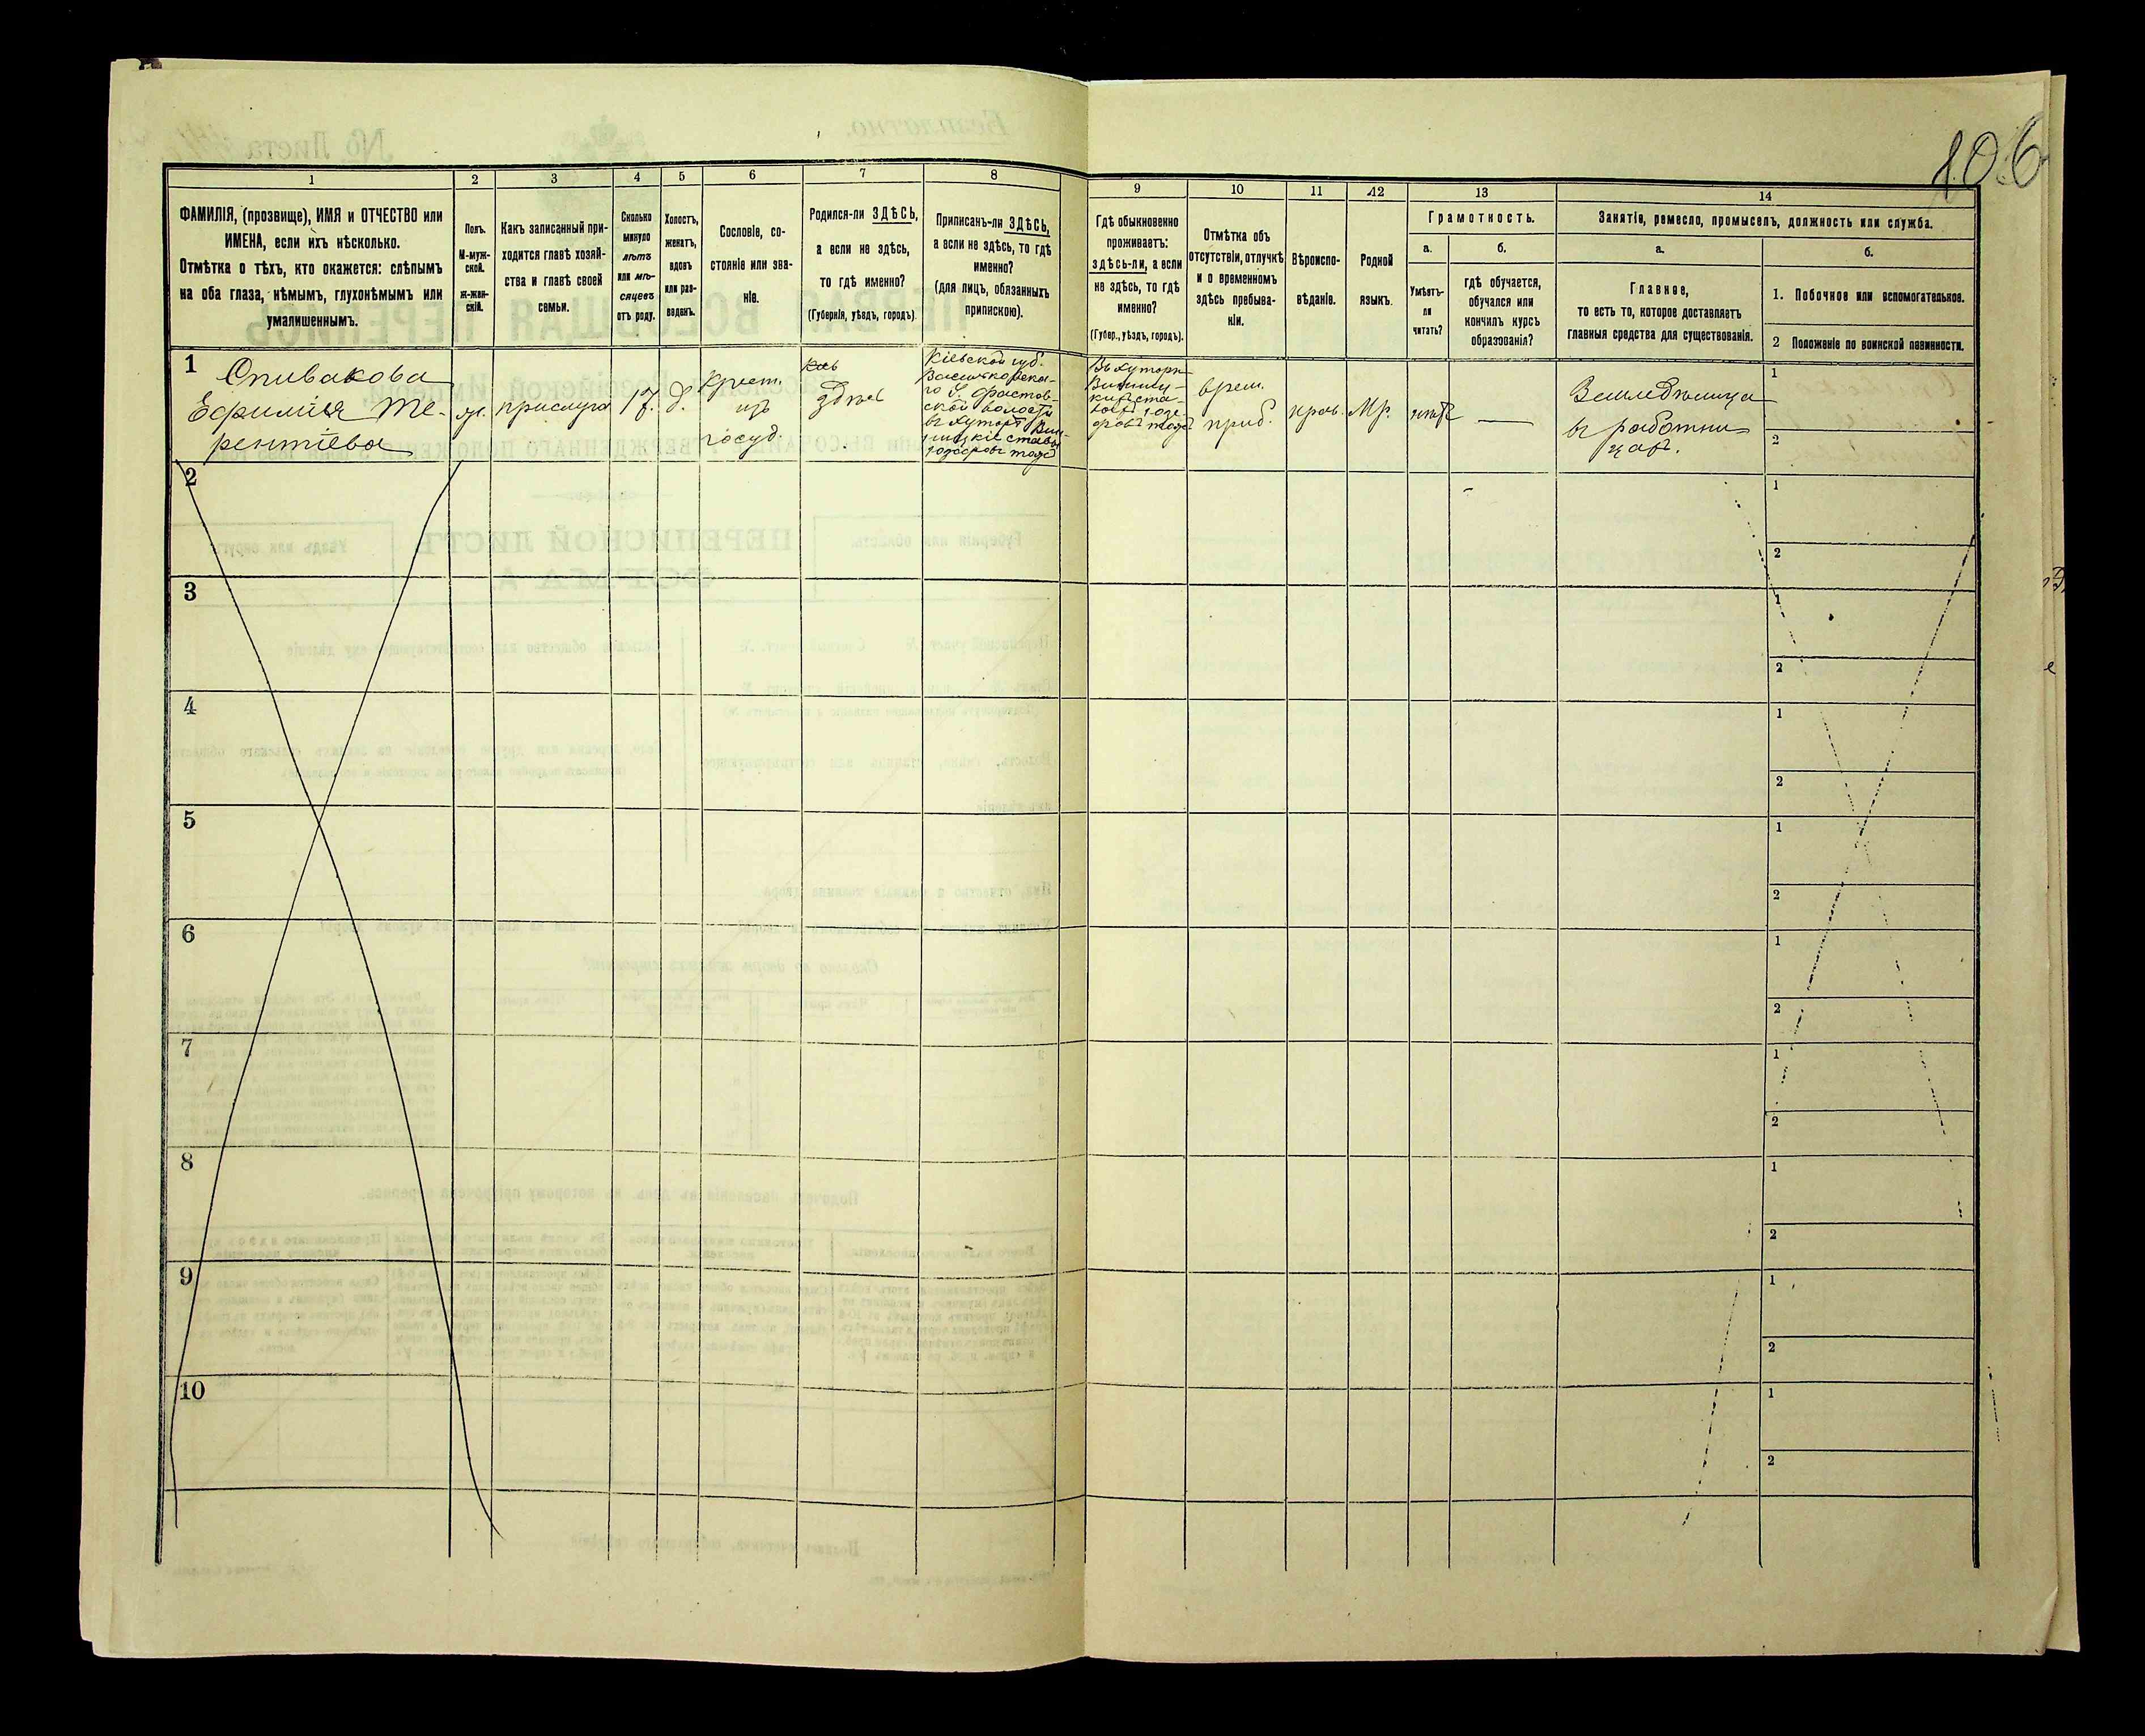 106
1
2
3
4
5
6
7
8
ФАМИЛІЯ, (прозвище), ИМЯ и ОТЧЕСТВО или
ИМЕНА, если ихъ нѣсколько.
Отмѣтка о тѣхъ, кто окажется: слѣпымъ
на оба глаза, нѣмымъ, глухонѣмымъ или
умалишеннымъ.
Полъ.
М-муж-
ской.
ж-жен-
скій.
Какъ записанный при-
ходится главѣ хозяй-
ства и главѣ своей
семьи.
Сколько
минуло
лѣтъ
или мѣ-
сяцевъ
отъ роду.
Холостъ,
женатъ,
вдовъ
или раз-
веденъ.
Сословіе, со-
стояніе или зва-
ніе.
Родился-ли ЗДѢСЬ,
а если не здѣсь,
то гдѣ именно?
(Губернія, уѣздъ, городъ).
Приписанъ-ли ЗДѢСЬ,
а если не здѣсь, то гдѣ
именно?
(для лицъ, обязанныхъ
припискою).
9
10
11
12
13
14
Гдѣ обыкновенно
проживаетъ:
здѣсь-ли, а если
не здѣсь, то гдѣ
именно?
(Губер., уѣздъ, городъ).
Отмѣтка объ
отсутствіи, отлучкѣ
и о временномъ
здѣсь пребыва-
ніи.
Вѣроиспо-
вѣданіе.
Родной
языкъ.
Грамотность.
а.
б.
Умѣетъ-
ли
читать?
гдѣ обучается,
обучался или
кончилъ курсъ
образованія?
Занятіе, ремесло, промыселъ, должность или служба.
а.
б.
Главное,
то есть то, которое доставляетъ
главныя средства для существованія.
1. Побочное или вспомогательное.
2 Положеніе по воинской повинности.
1
Спивакова
Ефимія Те-
рентіева
ж.
прислуга
17.
д.
крест.
изъ
госуд.
здѣсь
Кіевской губ.
Васильковска-
го у. Фастов-
ской волости
въ хуторѣ
тожъ
Въ хуторѣ
врем.
приб.
прав.
Мр.
нѣтъ
—
Земледѣлица
въ работни-
цахъ.
1
2
2
1
2
3
1
2
4
1
2
5
1
2
6
1
2
7
1
2
8
1
2
9
1
2
10
1
2